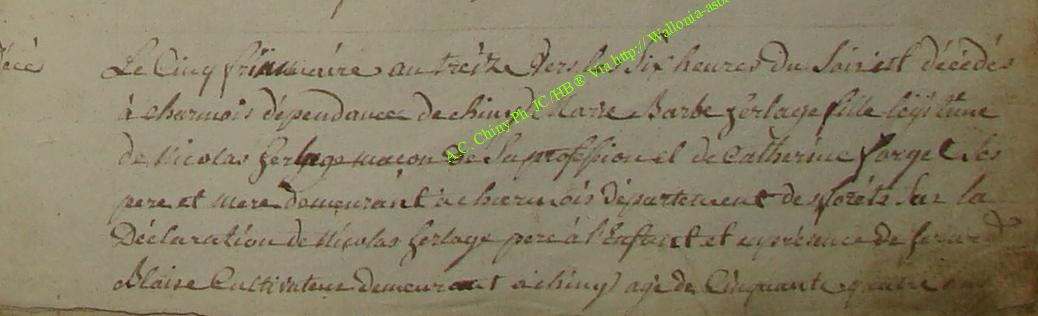 décé
Le Cinq frimaire an treize vers les Six heures du Soir est décédée
à charmois dépendance de chiny Marie Barbe ferlage fille légitime
de Nicolas ferlage maçon de Sa profession et de Catherine forget Ses
pere et mere demeurant à charmois département des foréts Sur la
Déclaration de Nicolas ferlage pere à l'Enfant et en présence de
Blaise Cultivateur demeurant à chiny agé de Cinquante quatre ans
A.C. Chiny Ph. JC /HB ® Via http:// Wallonia-asb